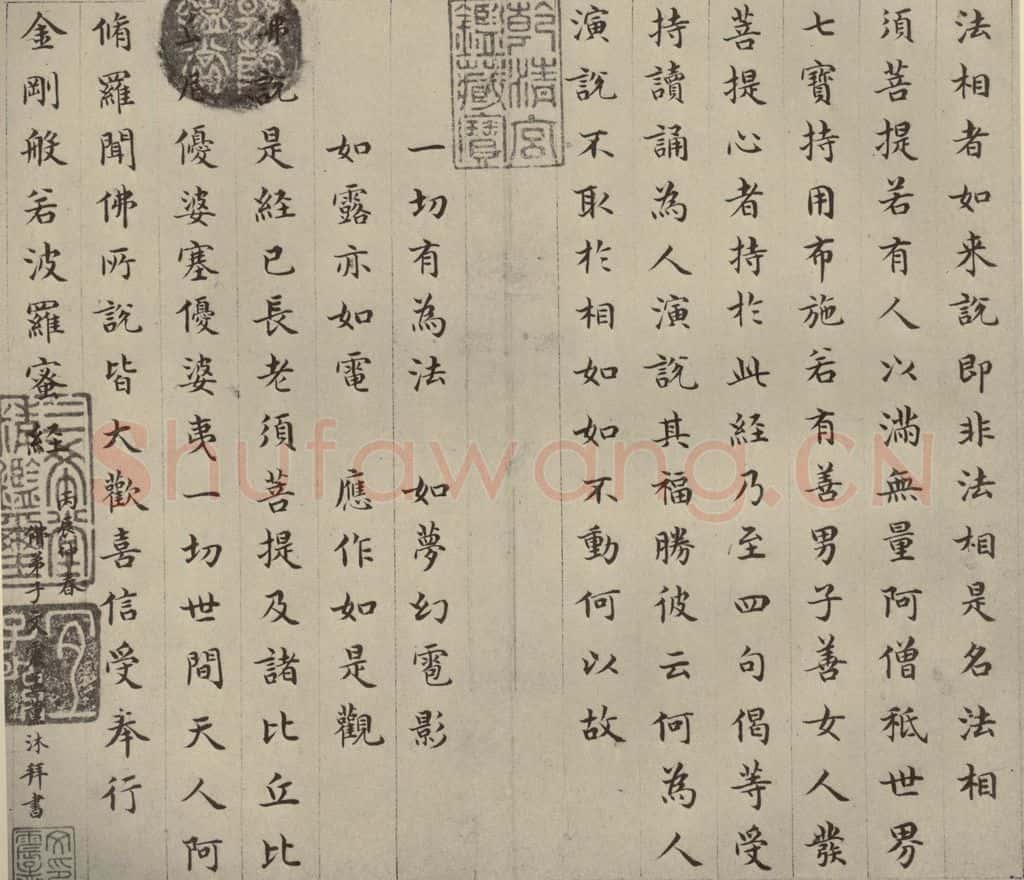 法相者如来說即非法相是名法相
須菩提若有人以滿無量阿僧秖世界
七寶持用布施若有善男子善女人發
菩提心者持於此経乃至四句偈等受
持讀誦為人演說其福勝彼云何為人
演說不取於相如如不動何以故
乾清宮鑑藏寶
一切有為法 如夢幻雹影
如露亦如電 應作如是觀
佛說是経已長老須菩提及諸比丘比
丘尼優婆塞優婆夷一切世間天人阿
脩羅聞佛所說皆大歡喜信受奉行
金剛般若波羅蜜経
丙辰中春
佛弟子文沐拜書
三希堂精鑑璽
Shufawang.CN